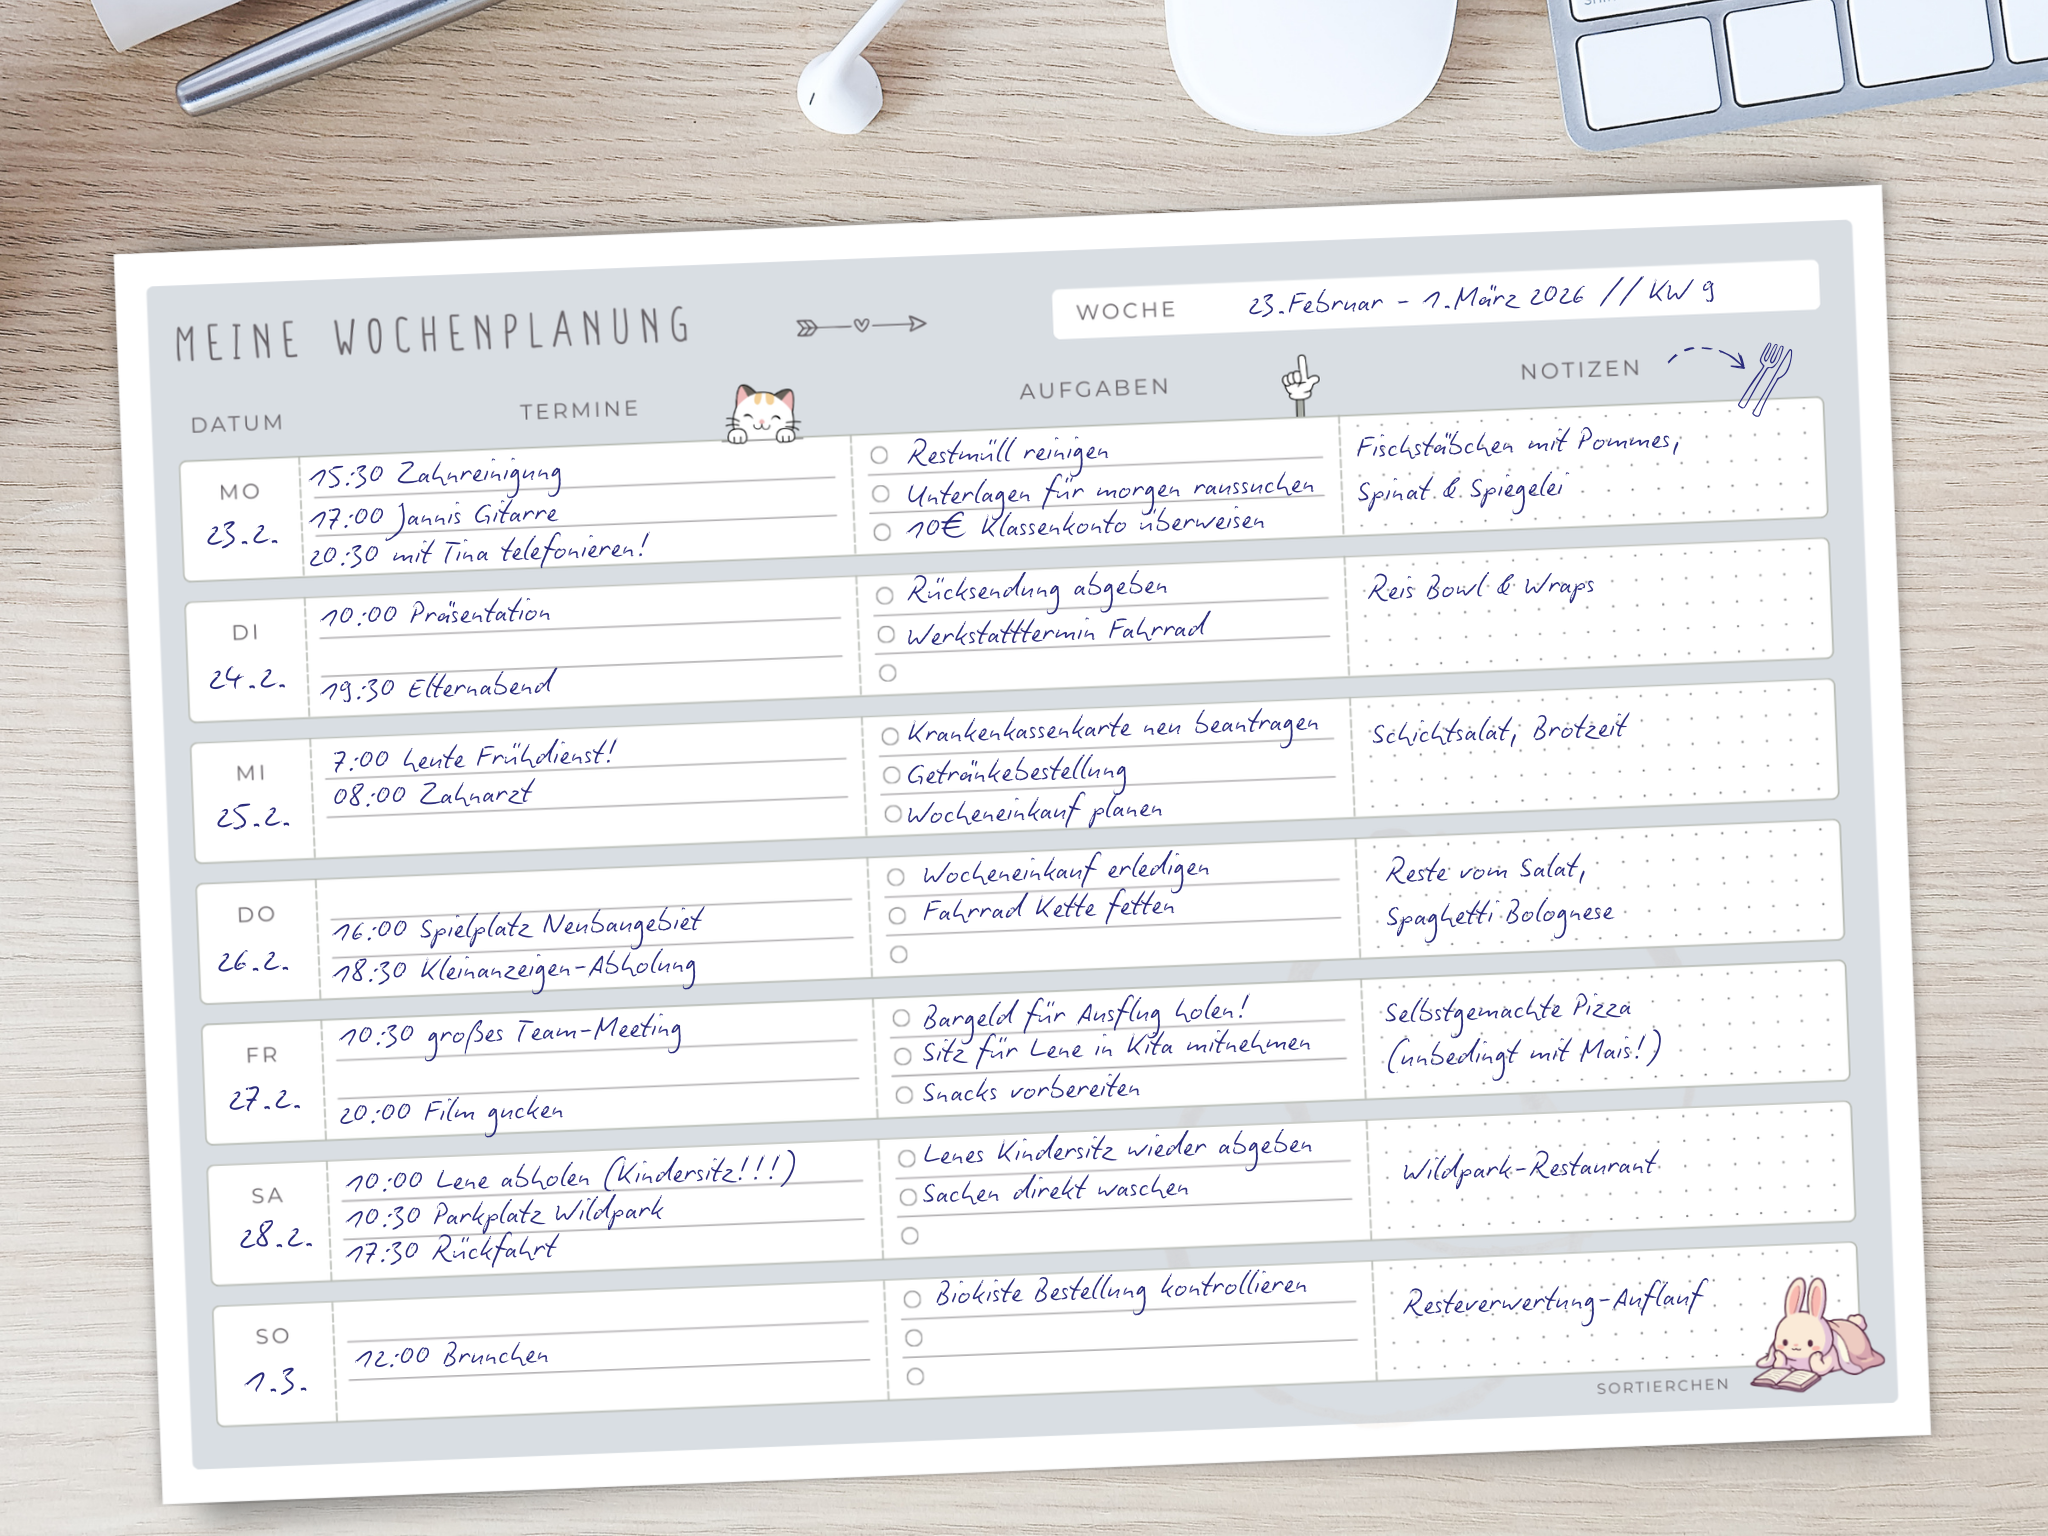 MEINE WOCHENPLANUNG
WOCHE 23.Februar - 1.März 2026 // KW 9
DATUM TERMINE AUFGABEN NOTIZEN
MO
23.2.
15:30 Zahnreinigung
17:00 Jannis Gitarre
20:30 mit Tina telefonieren!
Restmüll reinigen
Unterlagen für morgen raussuchen
10€ Klassenkonto überweisen
Fischstäbchen mit Pommes,
Spinat & Spiegelei
DI
24.2.
10:00 Präsentation
19:30 Elternabend
Rücksendung abgeben
Werkstatttermin Fahrrad
Reis Bowl & Wraps
MI
25.2.
7:00 heute Frühdienst!
08:00 Zahnarzt
Krankenkassenkarte neu beantragen
Getränkebestellung
Wocheneinkauf planen
Schichtsalat, Brotzeit
DO
26.2.
16:00 Spielplatz Neubaugebiet
18:30 Kleinanzeigen-Abholung
Wocheneinkauf erledigen
Fahrrad Kette fetten
Reste vom Salat,
Spaghetti Bolognese
FR
27.2.
10:30 großes Team-Meeting
20:00 Film gucken
Bargeld für Ausflug holen!
Sitz für Lene in Kita mitnehmen
Snacks vorbereiten
Selbstgemachte Pizza
(unbedingt mit Mais!)
SA
28.2.
10:00 Lene abholen (Kindersitz!!!)
10:30 Parkplatz Wildpark
17:30 Rückfahrt
Lenes Kindersitz wieder abgeben
Sachen direkt waschen
Wildpark-Restaurant
SO
1.3.
12:00 Brunchen
Biokiste Bestellung kontrollieren
Resteverwertung-Auflauf
SORTIERCHEN